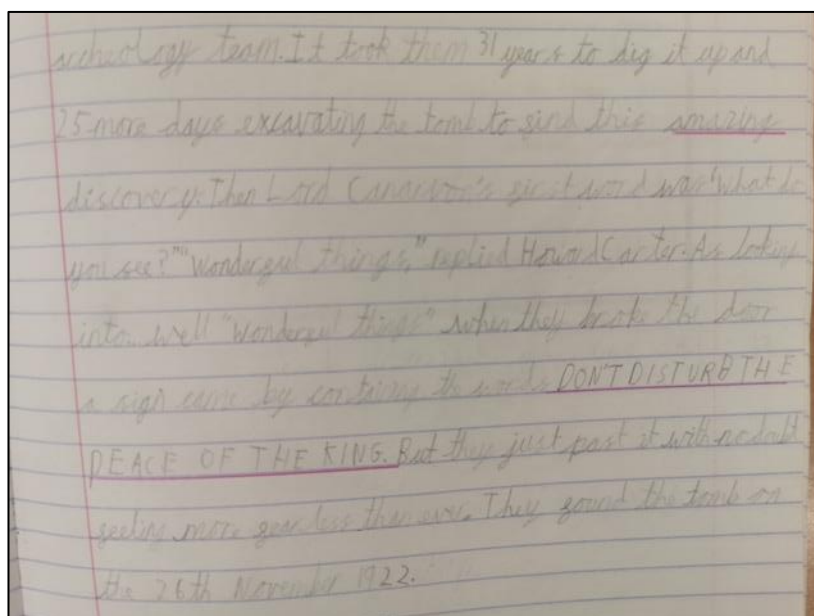 archeology team. It took them 31 years to dig it up and
25 more days excavating the tomb to find this amazing
discovery. Then Lord Canarvon's first word was "What do
you see?" "Wonderful things," replied Howard Carter. As looking
into well "wonderful things" when they broke the door
a sign came by containg the words DON'T DISTURB THE
PEACE OF THE KING. But they just past it with no doubt
feeling more fearless than ever. They found the tomb on
the 26th November 1922.